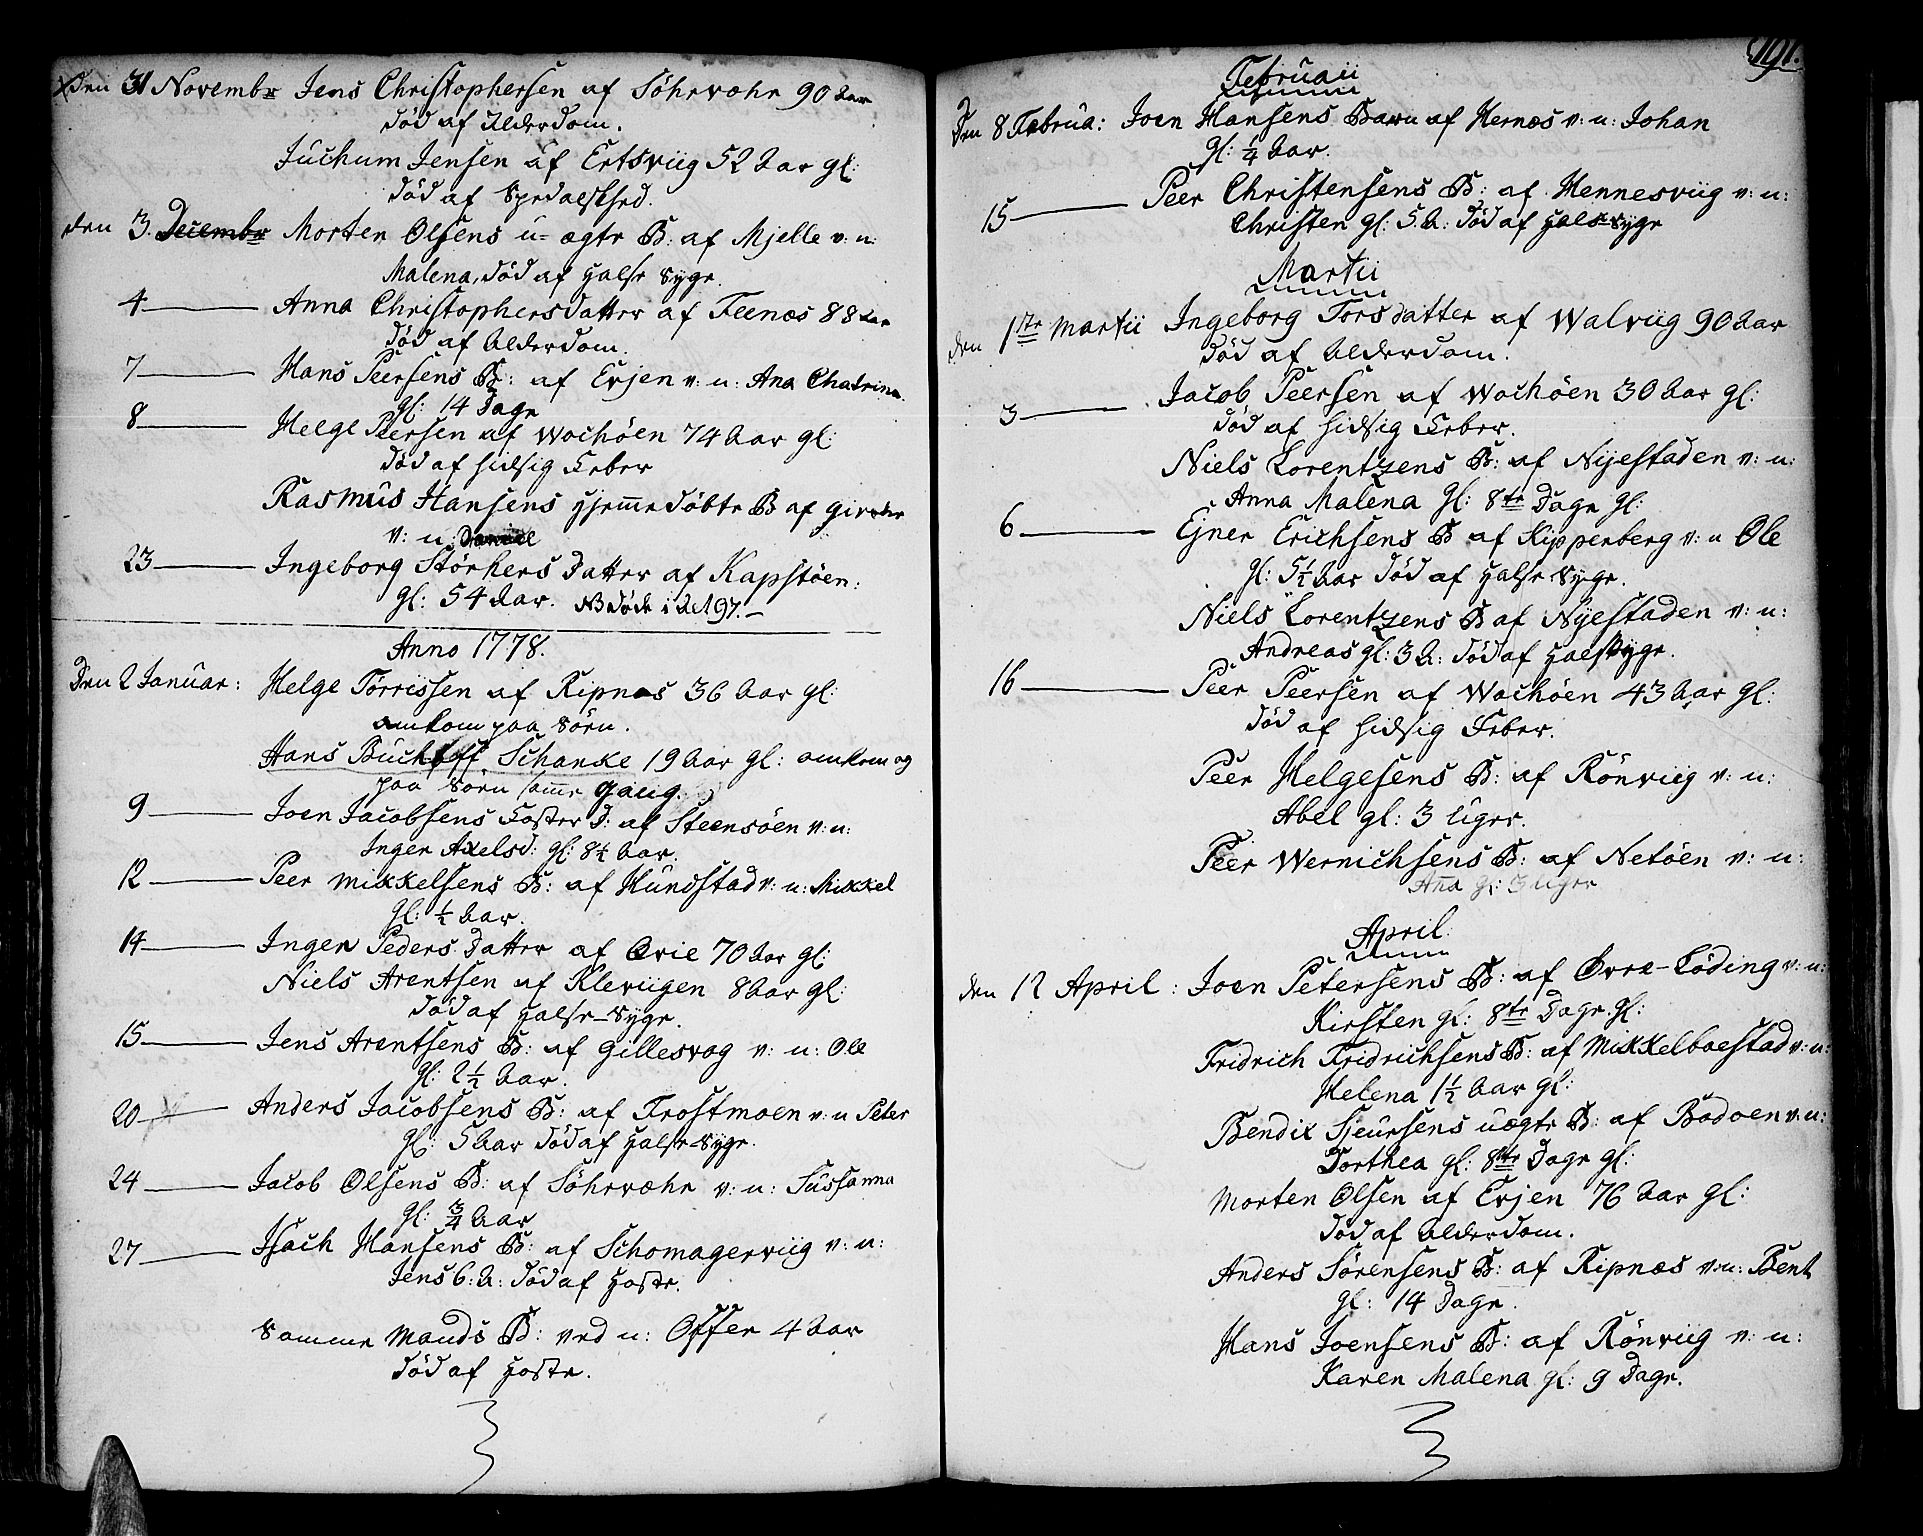 den 31 Novembr Jens Christophersen af Söhrvæhr 90 Aar
död af Alderdom.
Jüchum Jensen af Ertsviig 52 Aar gl:
död af Spedalskhed.
den 3. Decembr Morten Olsens u=ægte B: af Mjelle v: n:
Malena, död af Halse Syge.
4 Anna Christophersdatter af Feenæs 88 Aar
död af Alderdom.
7 Hans Peersens B: af Erjen v: n: Ana Chatrina
gl: 14 Dage
8 Helge Peersen af Wachöen 74 Aar gl:
död af hidsig Feber
Rasmus Hansens Hjemme döbte B af
v: n:
23 Ingeborg Störkers Datter af Kapstöen:
gl: 54 Aar. NB döde
Anno 1778.
Den 2 Januar: Helge Törrissen af Ripnæs 36 Aar gl:
omkom paa Söen.
Hans Büchhoff Schanke 19 Aar gl: omkom og
paa Söen samme gang.
9 Joen Jacobsens Foster D: af Steensöen v: n:
Inger Axelsd: gl: 8½ Aar.
12 Peer Mikkelsens B: af Hundstad v: n: Mikkel
gl: ½ Aar.
14 Inger Peders Datter af Evie 70 Aar gl:
Niels Arentsen af Kleviigen 8 Aar gl:
död af Halse-Syge.
15 Jens Arentsens B: af Gillesvog v: n: Ole
gl: 2½ Aar.
20 Anders Jacobsens B: af Frostmoen v: n Peter
gl: 5 Aar död af Halse Syge.
24 Jacob Olsens B: af Söhrvæhr v: n: Sussanna
gl: ¾ Aar
27 Isach Hansens B: af Schomagerviig v: n:
Jens 6: A: död af Hoste.
Samme Mands B: ved n: Offer 4 Aar
död af Hoste.
191.
Februarii
Den 8 Februa: Joen Hansens Barn af Hernæs v: n: Johan
gl: ¼ Aar.
15 Peer Christensens B: af Hennesviig v: n:
Christen gl: 5. A: död af Halssyge
Martii
den 1ste Martii Ingeborg Torsdatter af Walviig 90 Aar
död af Alderdom.
3 Jacob Peersen af Wachöen 30 Aar gl:
död af hidsig Feber.
Niels Lorentzens B: af Nyestaden v: n:
Anna Malena gl: 8te Dage gl:
6 Ejner Erichsens B af Kipperberg v: n Ole
gl: 5½ Aar död af Halse Syge.
Niels Lorentzens B af Nyestaden v: n:
Andreas gl: 3 A: död af Halssyge.
16 Peer Peersen af Wachöen 43 Aar gl:
död af hidsig Feber.
Peer Helgesens B: af Rönviig v: n:
Abel gl: 3 Uger.
Peer Wernichsens B: af Netöen v: n:
Aña gl: 3 Uger
April
den 12 April: Joen Petersens B: af Övre-Löding v: n:
Kirsten gl: 8te Dage gl:
Fridrich Fridrichsens B: af Mikkelboestad v: n:
Helena 1½ Aar gl:
Bendix Sjeursens uægte B: af Bodoen v: n:
Dorthea gl: 8te Dage gl:
Morten Olsen af Erjen 76 Aar gl:
död af Alderdom.
Anders Sörensens B: af Ripnæs v: n: Bent
gl: 14 Dage.
Hans Joensens B: af Rönviig v: n:
Karen Malena gl: 9 Dage.